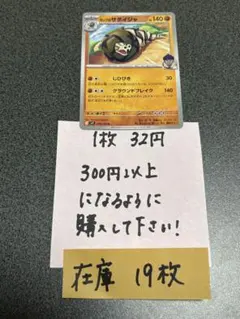 サダイジャ 140
じひびき 30
グラウンドブレイク 140
1枚 32円
300円以上
になるように
購入して下さい!
在庫 19枚